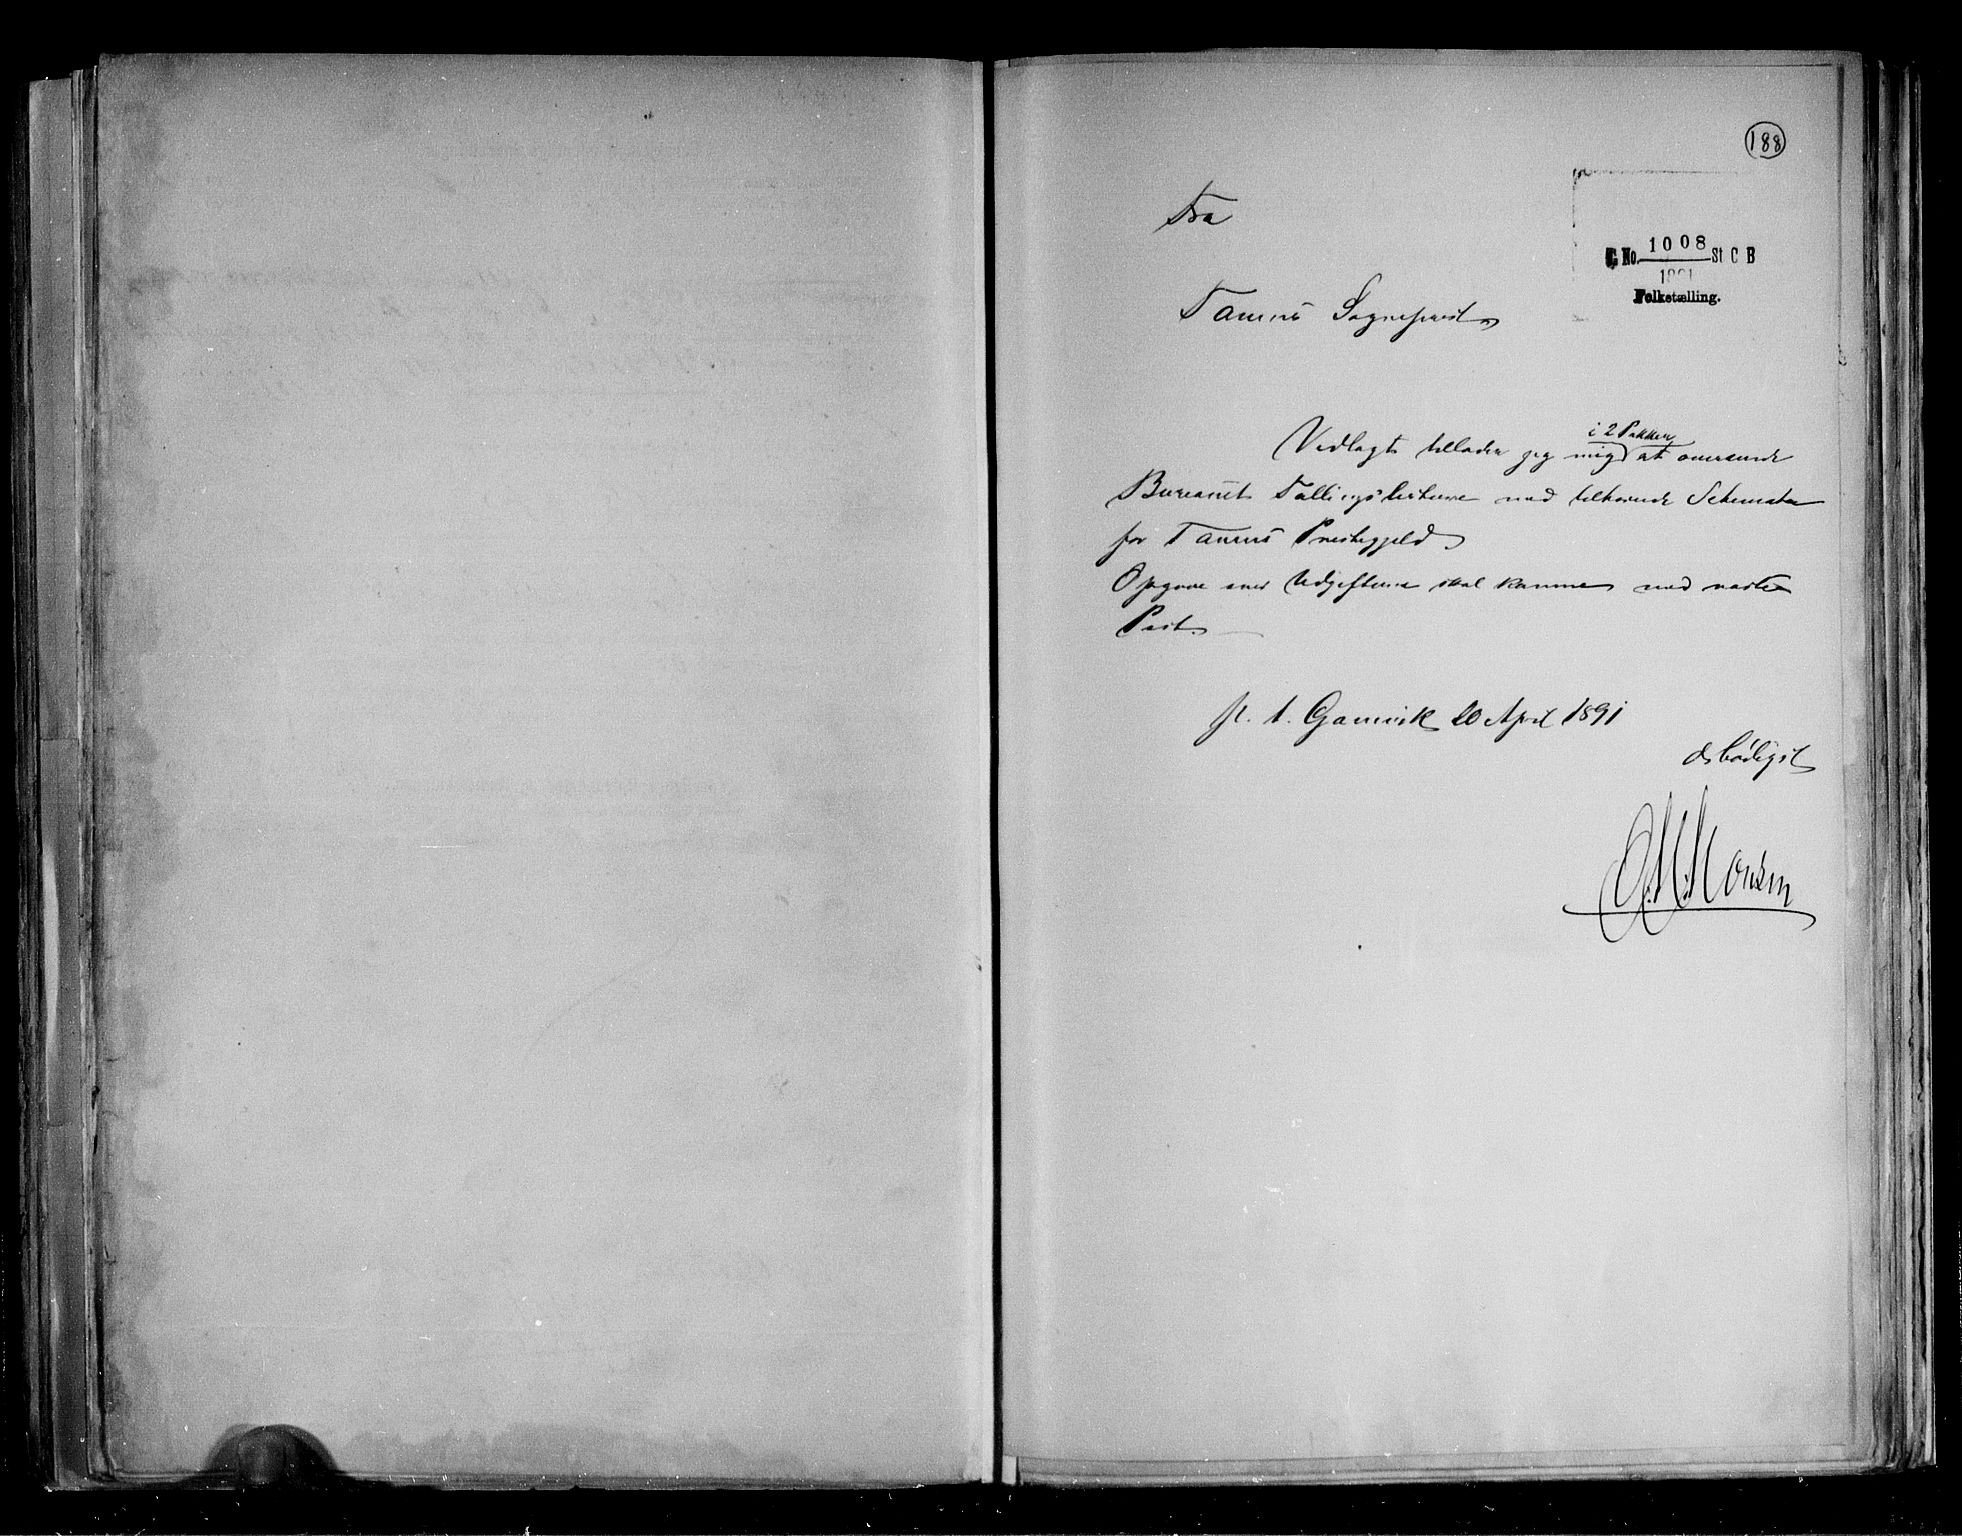 188
Fra
G. No. 1008 St C B
1891
Folketælling.
Tanens Sognepræst
i 2 Pakker
Vedlagt tillader jeg mig at oversende
Bureauet Tællingslisterne med tilhørende Schemata
for Tanens Præstegjeld
Opgave over Udgifterne skal komme med næste
Post.
p. t. Gamvik 20 April 1891
ærbødigst
O. M. Monsen